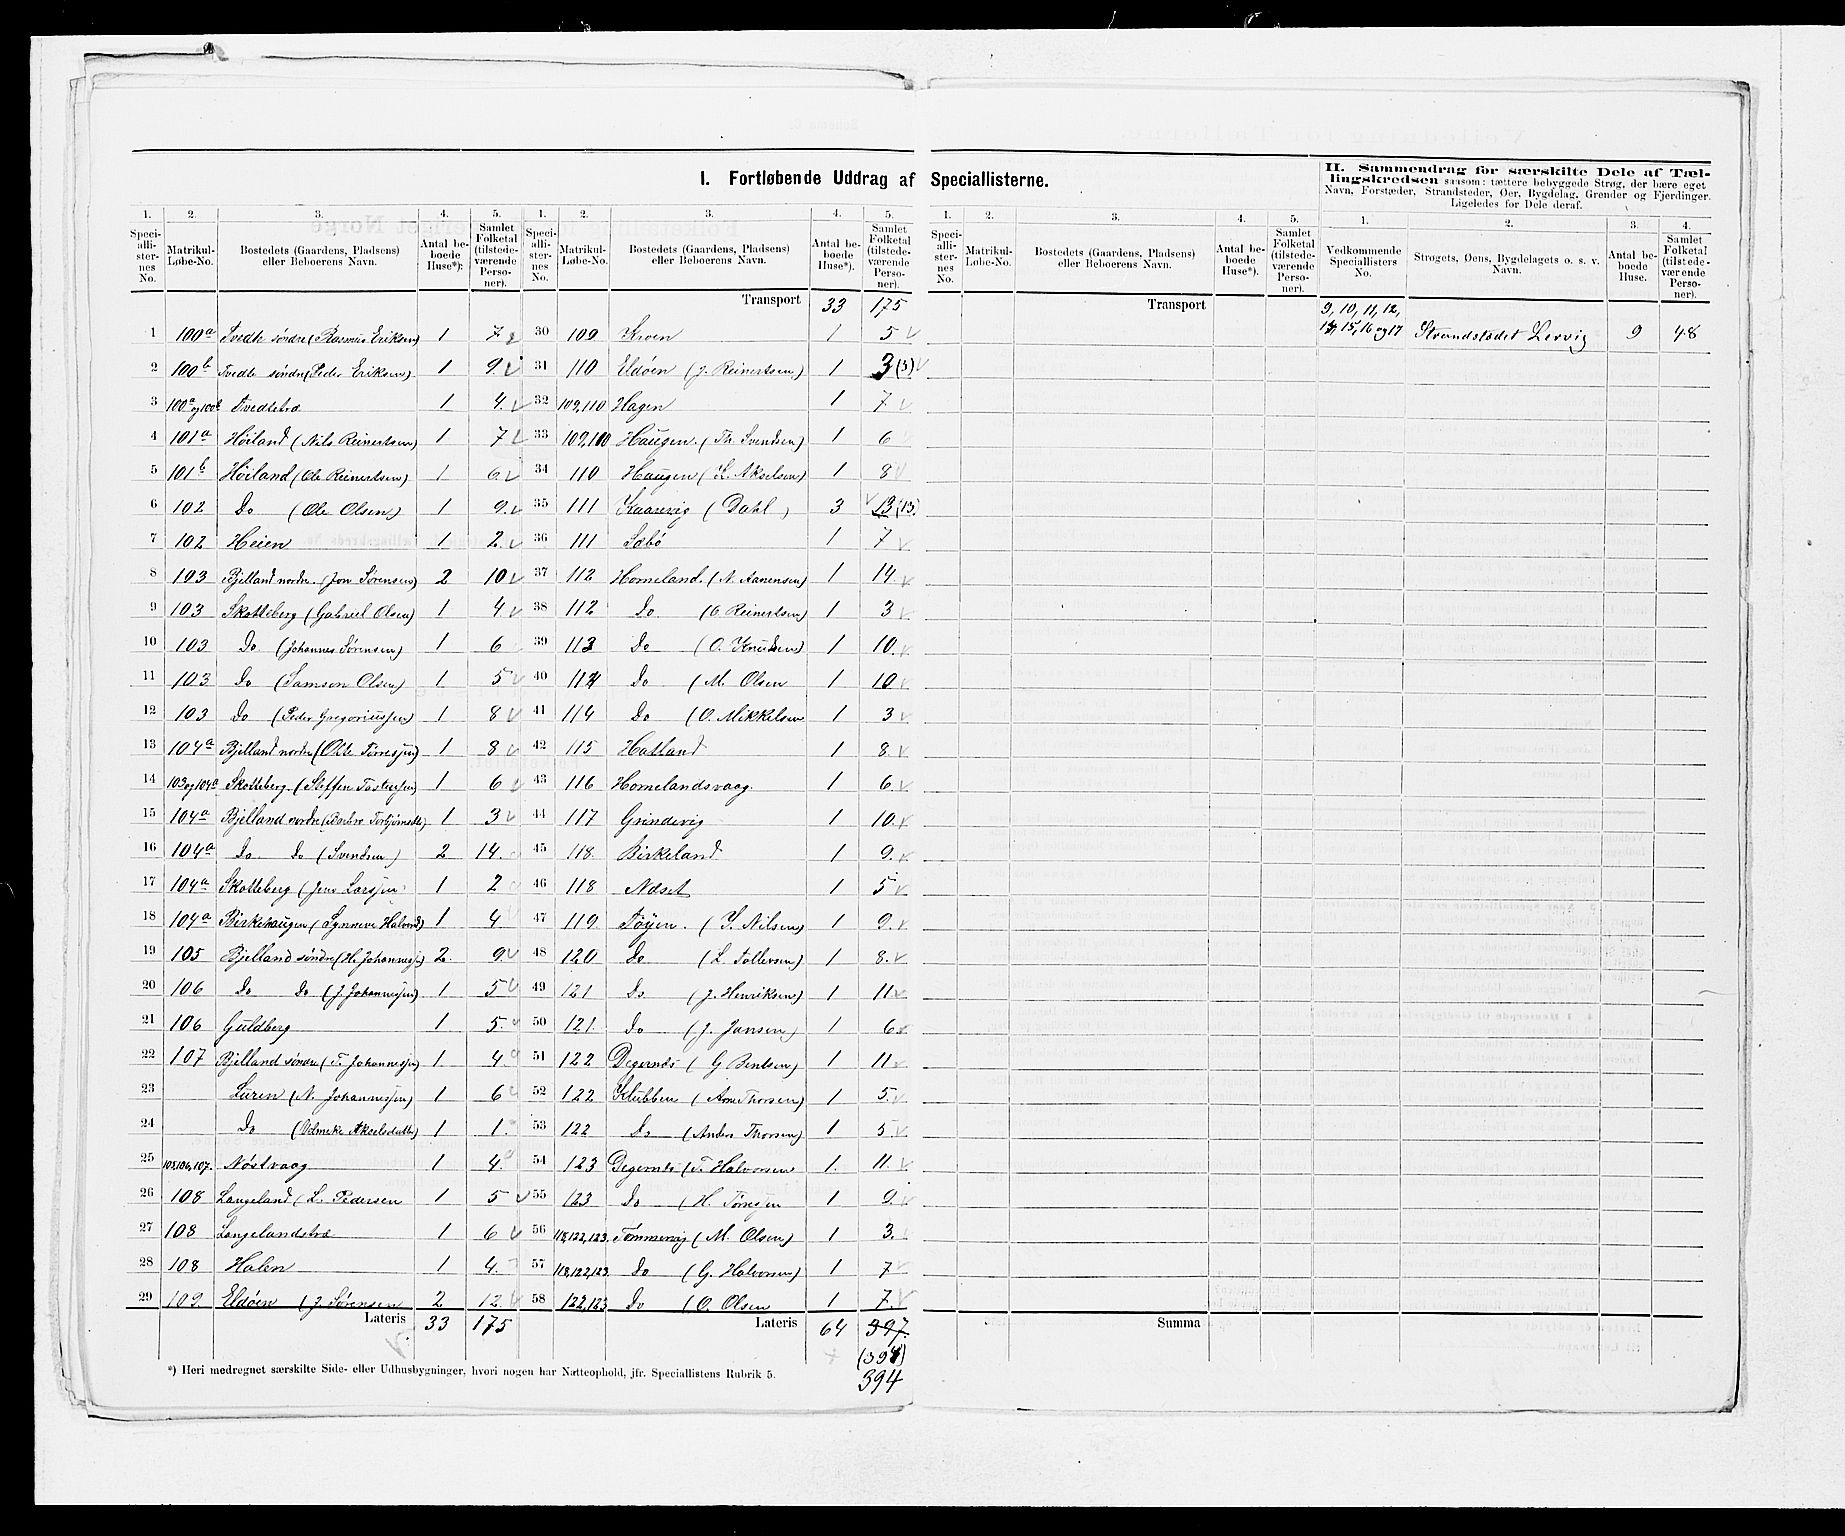 I. Fortløbende Uddrag af Speciallisterne.
II. Sammendrag for særskilte Dele af Tæl-
lingskredsen saasom: tættere bebyggede Strøg, der bære eget
Navn, Forstæder, Strandsteder, Øer, Bygdelag, Grender og Fjerdinger.
Ligeledes for Dele deraf.
1. 2. 3. 4. 5. 1. 2. 3. 4. 5. 1. 2. 3. 4. 5. 1. 2. 3. 4.
Speciallisternes No. Matrikul-Løbe-No. Bostedets (Gaardens, Pladsens) eller Beboerens Navn. Antal beboede Huse*). Samlet Folketal (tilstedeværende Personer).
Speciallisternes No. Matrikul-Løbe-No. Bostedets (Gaardens, Pladsens) eller Beboerens Navn. Antal beboede Huse*). Samlet Folketal (tilstedeværende Personer).
Speciallisternes No. Matrikul-Løbe-No. Bostedets (Gaardens, Pladsens) eller Beboerens Navn. Antal beboede Huse*). Samlet Folketal (tilstedeværende Personer).
Vedkommende Speciallisters No. Strøgets, Øens, Bygdelagets o. s. v. Navn. Antal beboede Huse. Samlet Folketal (tilstedeværende Personer).
1 100a Tvedte søndre (Rasmus Eriksen) 1 7
2 100b Tvedte søndre (Peder Eriksen) 1 9
3 100a og 100b Tvedtebro 1 4
4 101a Høiland (Nils Reinertsen) 1 7
5 101b Høiland (Ole Reinertsen) 1 6
6 102 Do (Ole Olsen) 1 9
7 102 Heien 1 2
8 103 Bjelland nordre (Jon Sørensen) 2 10
9 103 Skotteberg (Gabriel Olsen) 1 4
10 103 Do (Johannes Sørensen) 1 6
11 103 Do (Samson Olsen) 1 5
12 103 Do (Peder Gregoriussen) 1 8
13 104a Bjelland nordre (Olle Tørresen) 1 8
14 103 og 104a Skotteberg (Steffen Tostensen) 1 6
15 104a Bjelland nordre (Barbro Torbjørnsdtr) 1 3
16 104a Do Do (Svendsen) 2 14
17 104a Skotteberg (Jens Larsen) 1 2
18 104a Birkehaugen (Synneve Halvorsd) 1 4
19 105 Bjelland søndre (H. Johannesen) 2 9
20 106 Do Do (J. Johannesen) 1 5
21 106 Guldberg 1 5
22 107 Bjelland søndre (T. Johannesen) 1 4
23 Luren (N. Johannesen) 1 6
24 Do 1 1
25 105,106,107. Nøstvaag 1 4
26 108 Langeland (L. Pedersen 1 5
27 108 Langelandsbro 1 6
28 108 Halen 1 4
29 109. Eldøen (J. Sørensen 2 12
Lateris 33 175
Transport 33 175
30 109 Kroen 1 5
31 110 Eldøen (J. Reinertsen) 1 3 (3)
32 109,110 Hagen 1 7
33 109,110 Haugen. (Th. Svendsen) 1 6
34 110 Haugen (K. Akselsen) 1 8
35 111 Kaarevig (Dahl) 3 13 (13)
36 111 Sæbø 1 7
37 112 Homeland. (N. Aanensen) 1 14
38 112 Do (O Reinertsen) 1 3
39 113 Do (O. Knudsen) 1 10
40 114 Do (M. Olsen 1 10
41 114 Do (O. Mikkelsen 1 3
42 115 Hatland 1 8
43 116 Homelandsvaag. 1 6
44 117 Grindevig 1 10
45 118 Birkeland 1 9
46 118 Næset 1 5
47 119 Tøyen. (Y. Nilsen) 1 9
48 120 Do (L. Tollevsen) 1 8
49 121 Do (J. Henriksen) 1 11
50 121. Do (J. Jansen) 1 6
51 122 Degernes (G Bentsen) 1 11
52 122 Klubben (Arne Thorsen) 1 5
53 122 Do (Anders Thorsen) 1 5
54 123 Degernes (T. Halvorsen 1 11
55 123 Do (H. Tørresen 1 9
56 118,122,123. Tømmervig (M. Olsen) 1 3
57 118,122,123 Do (G. Halvorsen) 1 7
58 122,123 Do (O. Olsen 1 7
Lateris 64 397
(394)
394
Transport
Summa
9, 10, 11, 12,
14, 15, 16 og 17 Strandstedet Lervig 9 48
*) Heri medregnet særskilte Side- eller Udhusbygninger, hvori nogen har Natteophold, jfr. Speciallistens Rubrik 5.